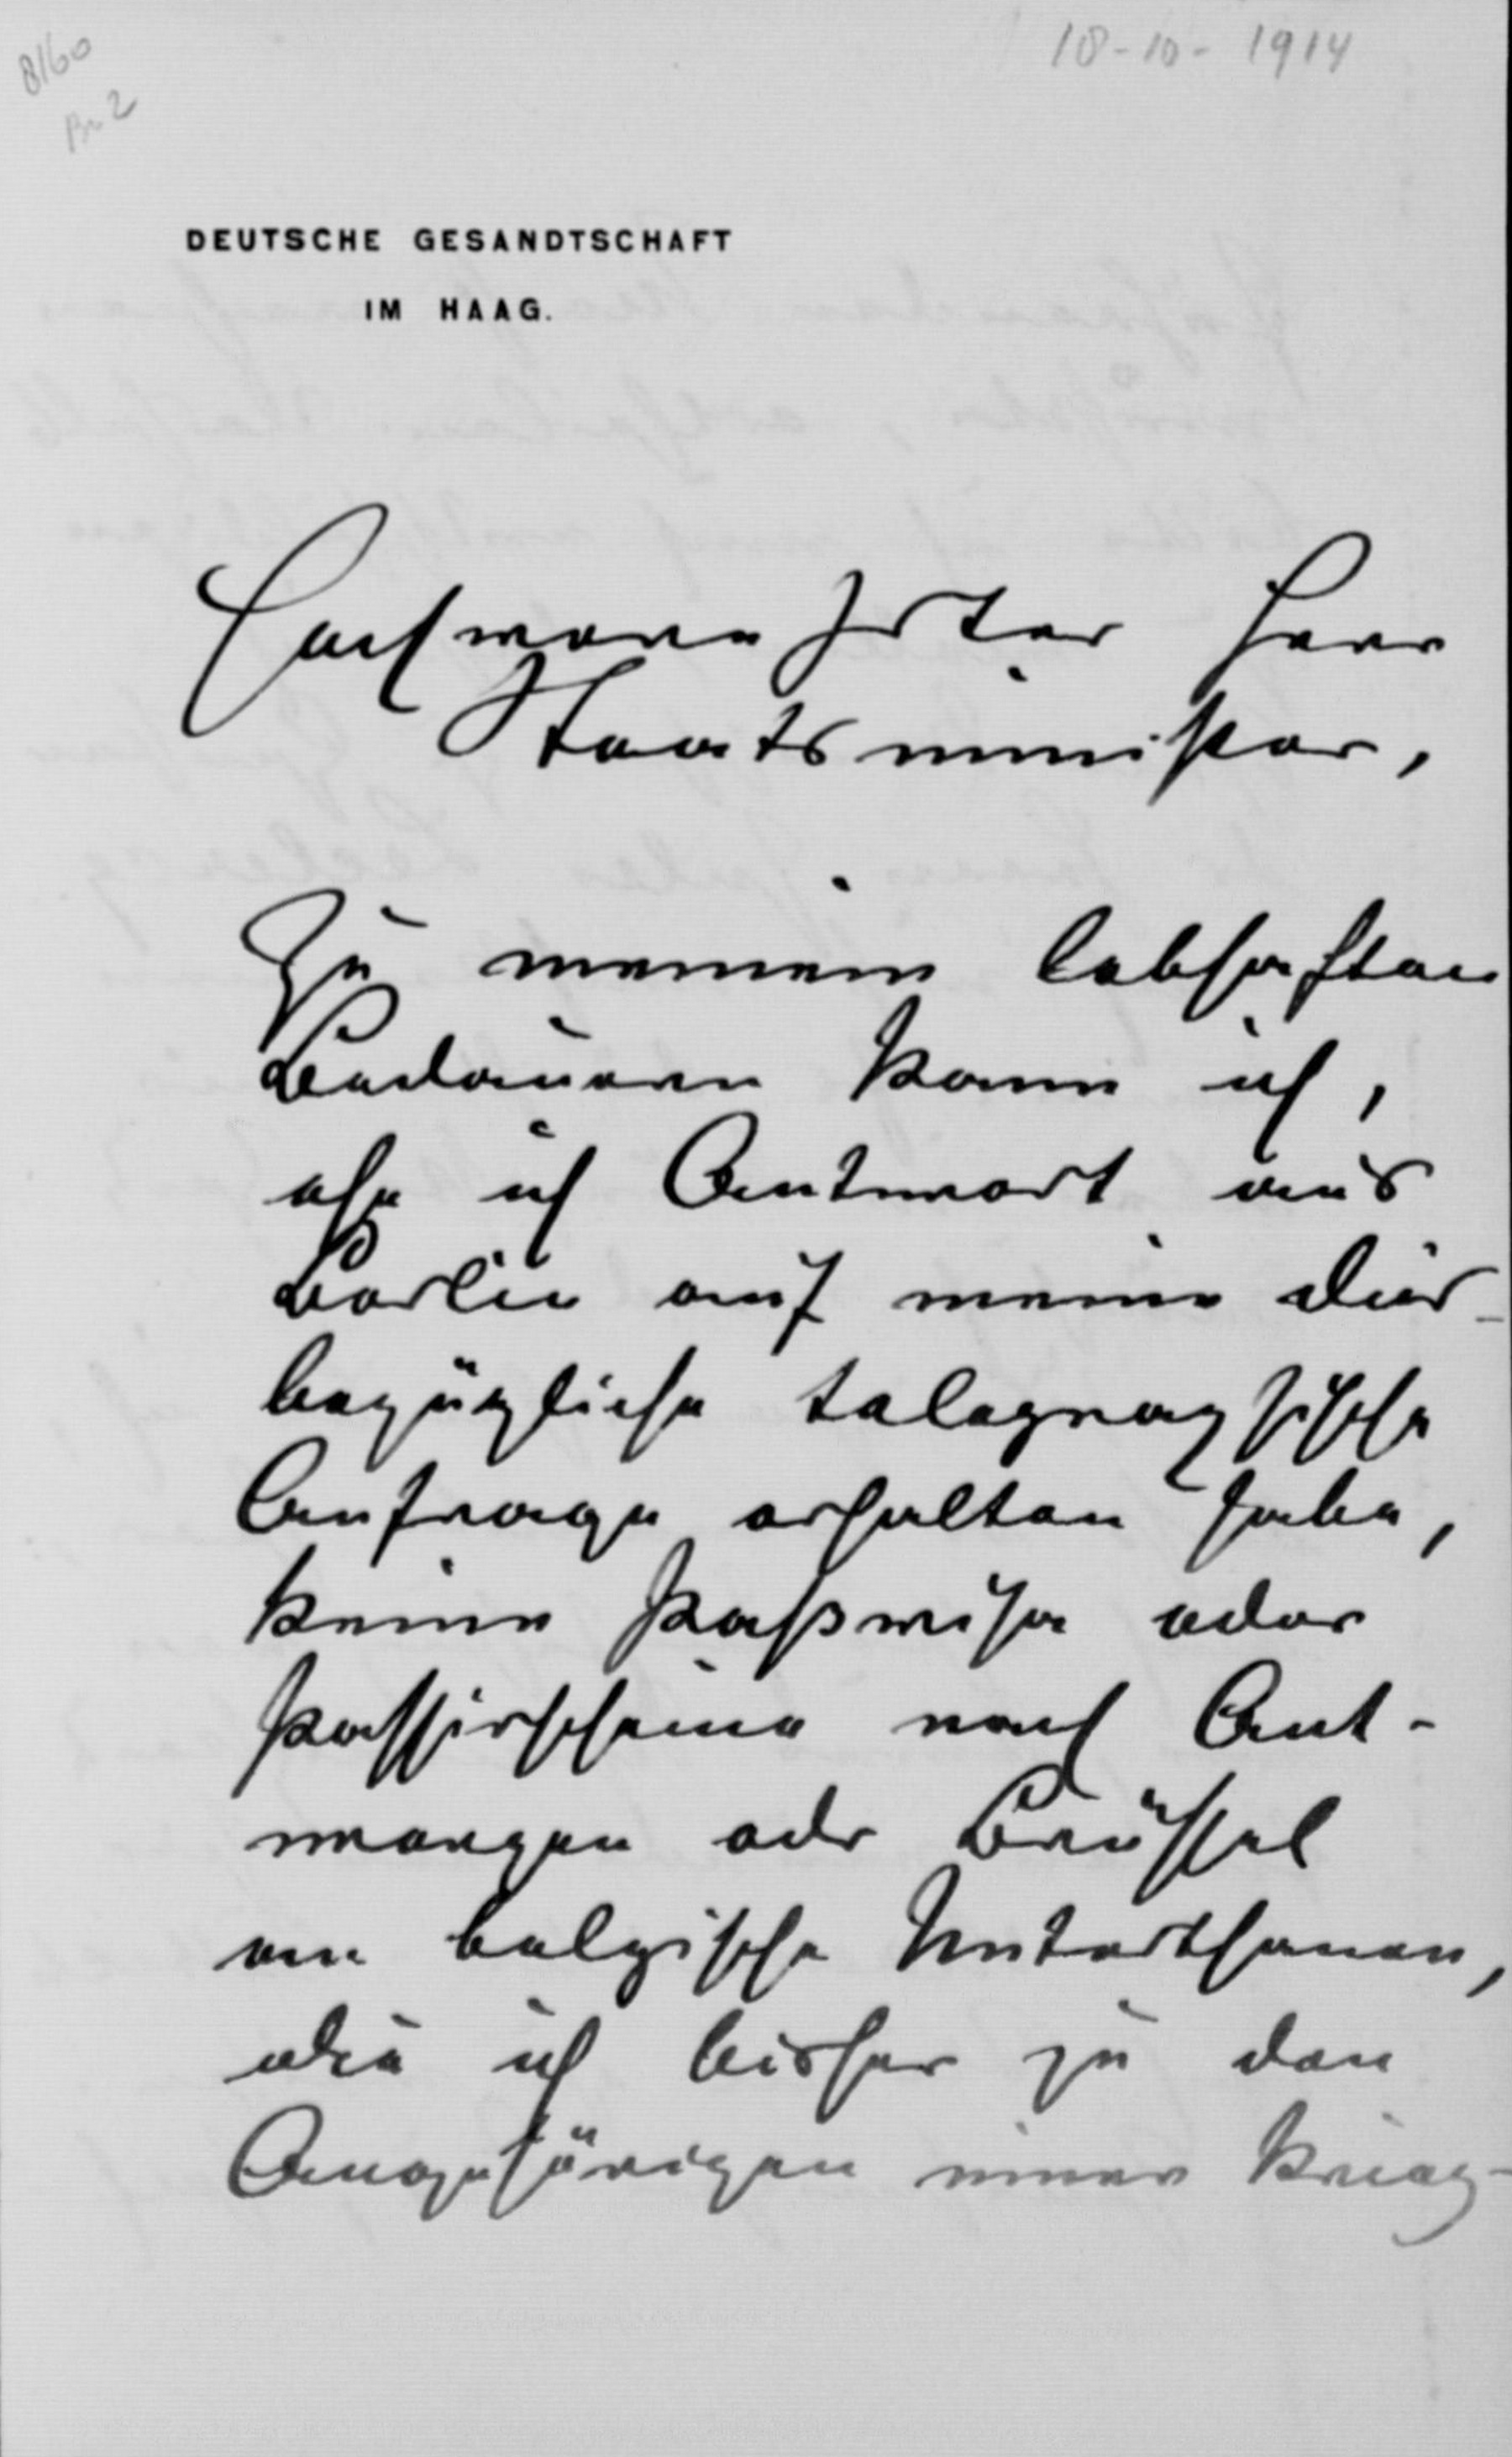 8160
Br 2
18-10-1914
DEUTSCHE GESANDTSCHAFT
IM HAAG.
Hochverehrter Herr
Staatsminister,
Zu meinem lebhaften
Bedauern kann ich,
ehe ich Antwort aus
Berlin auf meine dies-
bezügliche telegraphische
Anfrage erhalten habe,
keine Paßvisa oder
Passirscheine nach Ant-
werpen oder Brüssel
an belgische Unterthanen,
die ich bisher zu den
Angehörigen einer krieg-